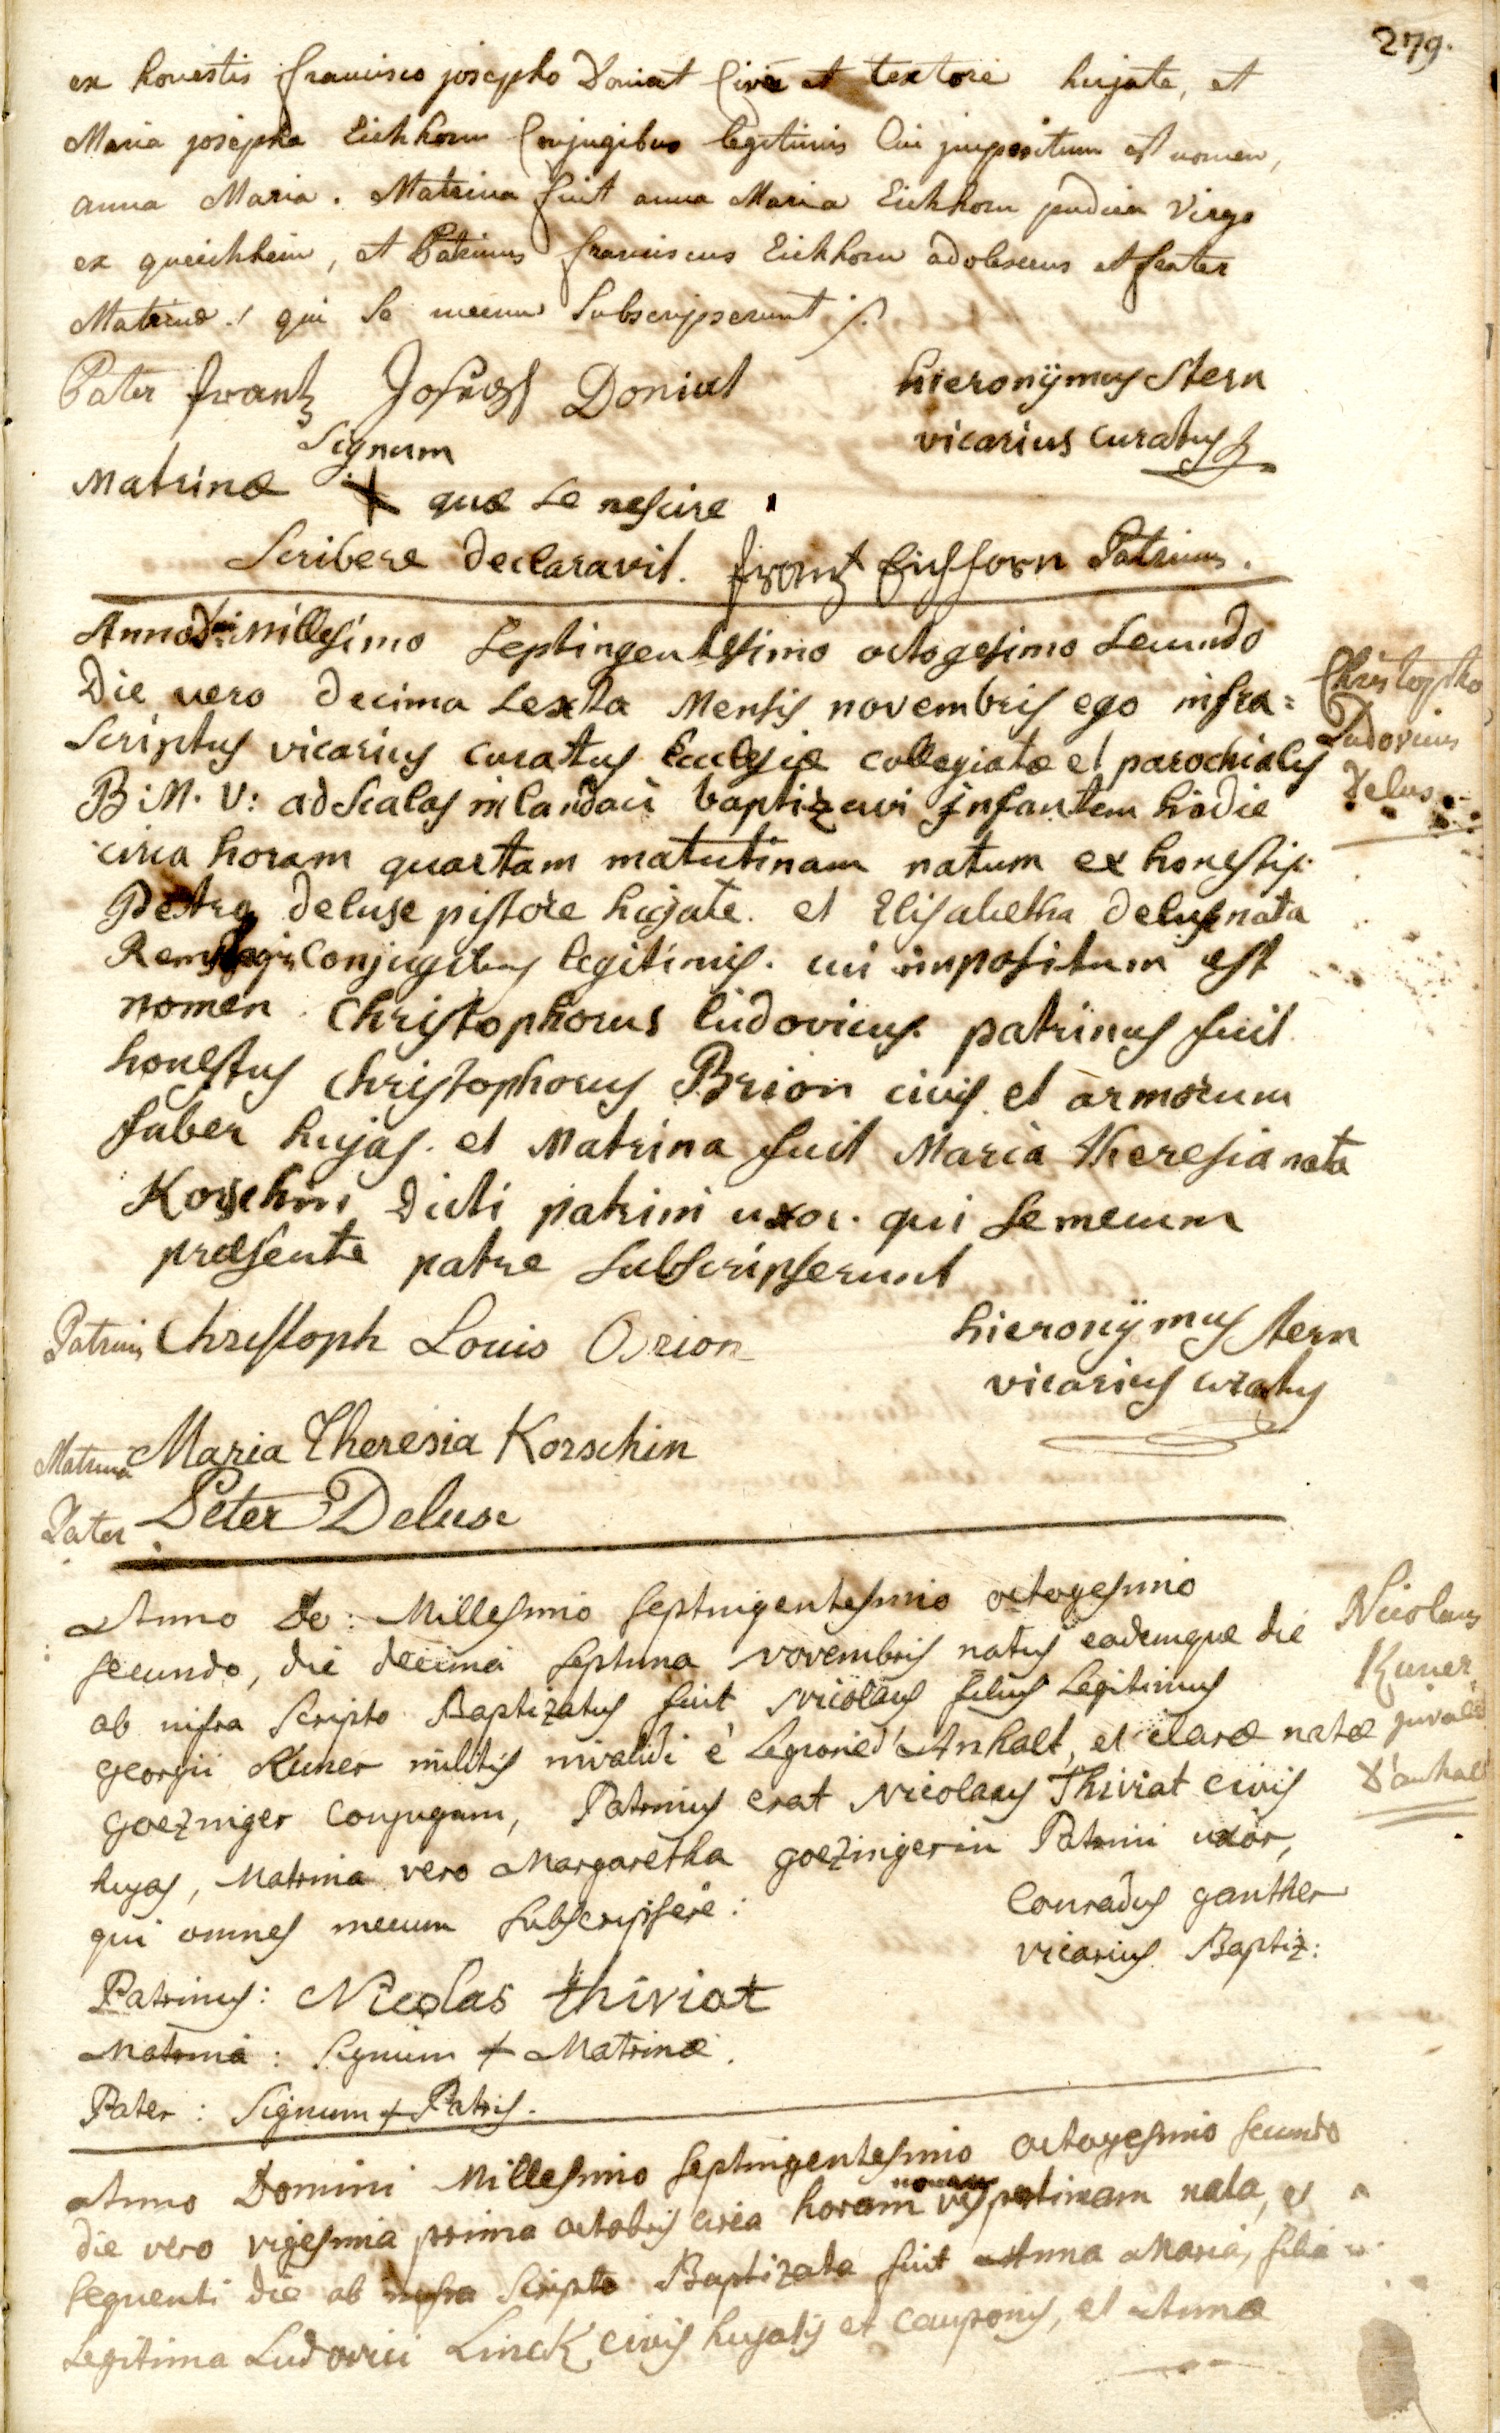 279.
ex honestis francisco josepho Doniat Cive et textore hujate, et
Maria josepha Eichhorn Conjugibus legitimis Cui jmpositum est nomen,
anna Maria. Matrina fuit anna Maria Eichhorn pudica Virgo
ex queichheim, et Patrinus franciscus Eichhorn adolescens et frater
Matrinæ! qui se mecum Subscripserunt
Pater frantz Joseph Doniat
hieronÿmus Stern
vicarius curatus
Signum
Matrinæ + quæ se nescire
Scribere declaravit. frantz Eichhorn Patrinus.
Anno Dni millesimo Septingentesimo octogesimo Secundo
Die vero decima Sexta Mensis novembris ego infra=
Scriptus vicarius curatus Ecclesiæ collegiatæ et parochialis
B: M. V: ad Scalas in landau baptizavi jnfantem hodie
circa horam quartam matutinam natum ex honestis
Petro Deluse pistore hujate. et Elisabetha Deluse nata
conjugibus legitimis. cui impositum est
nomen Christophorus ludovicus. patrinus fuit
honestus christophorus Brion civis et armorum
faber hujas. et Matrina fuit Maria theresia nata
Korschin dicti patrini uxor. qui se mecum
præsente patre subscripserunt
Christopho
Ludovicus
Delus
Patrinus Christoph Louis Brion
hieronÿmus Stern
vicarius curatus
Matrina Maria Theresia Korschin
Pater Peter Deluse
Anno Do: Millesimo Septingentesimo octogesimo
secundo, die decima Septima novembris natus eademque die
ab infra Scripto Baptizatus fuit Nicolaus filius Legitimus
Georgii Kuner militis invalidi è Legione d'Anhalt, et claræ natæ
Goezinger Conjugum, Patrinus erat Nicolaus Thiviat Civis
hujas, Matrina vero Margaretha Goezingerin Patrini uxor,
qui omnes mecum Subscripsere:
Nicolaus
Kuner
jnvalid
d'anhalt
Conradus Ganther
vicarius Baptiz:
Patrinus: Nicolas thiviat
Matrina: Signum + Matrinæ.
Pater: Signum + Patris.
Anno Domini Millesimo Septingentesimo octogesimo secundo
die vero vigesima prima octobris circa horam nonam vespertinam nata, et
sequenti die ab infra Scripto Baptizata fuit Anna Maria, filia
Legitima Ludovici Linck civis hujatis et cauponis, et Annæ